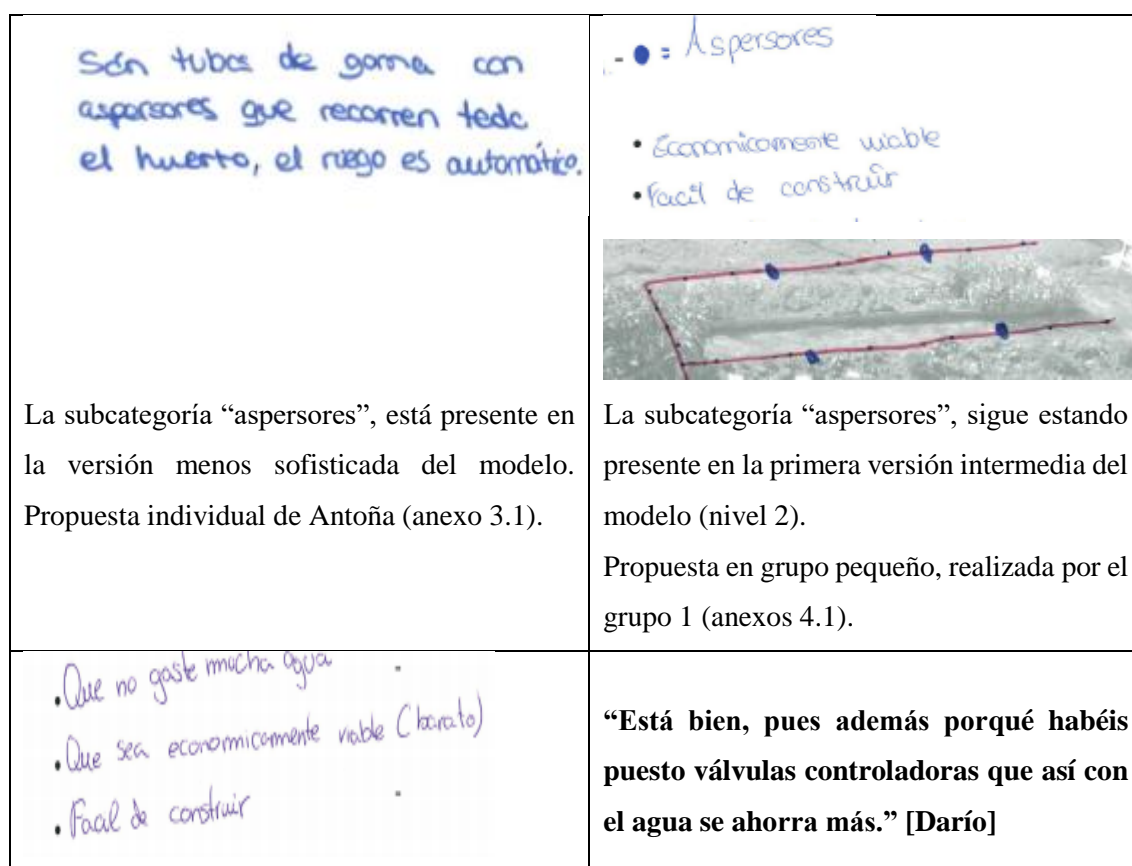 Són tubos de goma con
aspersores que recorren todo
el huerto, el riego es automático.
La subcategoría “aspersores”, está presente en
la versión menos sofisticada del modelo.
Propuesta individual de Antoña (anexo 3.1).
- ● = Aspersores
• Economicamente viable
• Facil de construir
La subcategoría “aspersores”, sigue estando
presente en la primera versión intermedia del
modelo (nivel 2).
Propuesta en grupo pequeño, realizada por el
grupo 1 (anexos 4.1).
• Que no gaste mucha agua
• Que sea economicamente viable (barato)
• Facil de construir
“Está bien, pues además porqué habéis
puesto válvulas controladoras que así con
el agua se ahorra más.” [Darío]